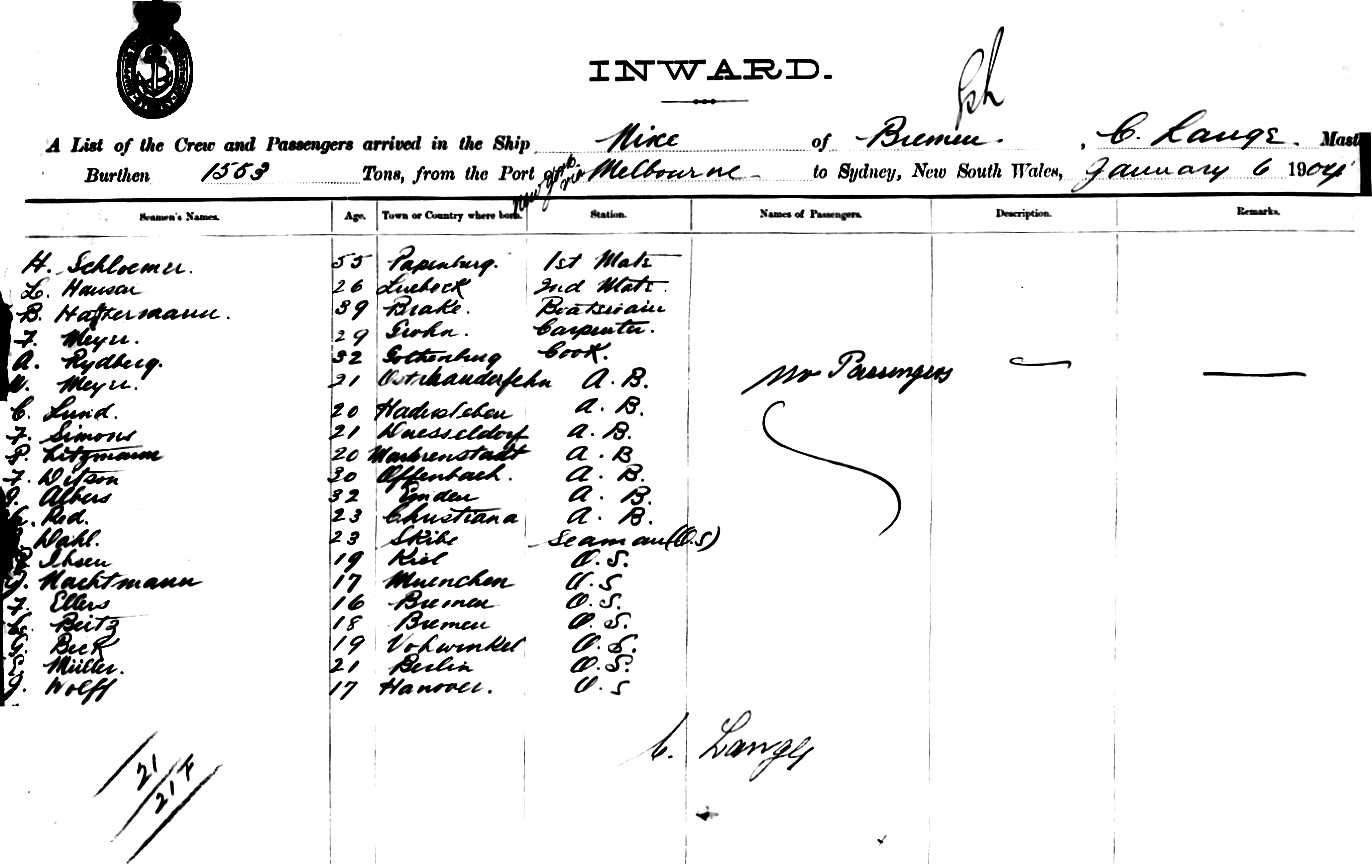 INWARD.
A List of the Crew and Passengers arrived in the Ship Mike of Bremen. , C. Lange. Mast
Burthen 1553 Tons, from the Port Melbourne to Sydney, New South Wales, January 6 1904
Seamen's Names. Age. Town or Country where born. Station. Names of Passengers. Description. Remarks.
H. Schloemer. 55 Papenburg. 1st Mate
L. Hanson 26 Luebeck 2nd Mate.
B. Hattermann. 39 Brake. Boatswain
F. Meyer. 29 Grohn. Carpenter.
A. Rydberg. 32 Gothenburg Cook.
Meyer. 21 Ostrhauderfehn A. B. No Passengers
C. Lund. 20 Hadersleben A. B.
F. Simons 21 Duesseldorf A. B.
Litzmann 20 A. B
F. Ditson 30 Offenbach. A. B.
Albers 32 Emden A. B.
Red. 23 Christiana A. B.
Dahl. 23 Skibe Seaman (O.S)
Ibsen 19 Kiel O. S.
Nachtmann 17 Muenchen O. S
F. Ellers 16 Bremen O. S.
Beitz 18 Bremen O. S.
Beck 19 Vohwinkel O. S.
Müller. 21 Berlin O. S.
Wolff 17 Hanover. O. S
C. Lange
21
21 F